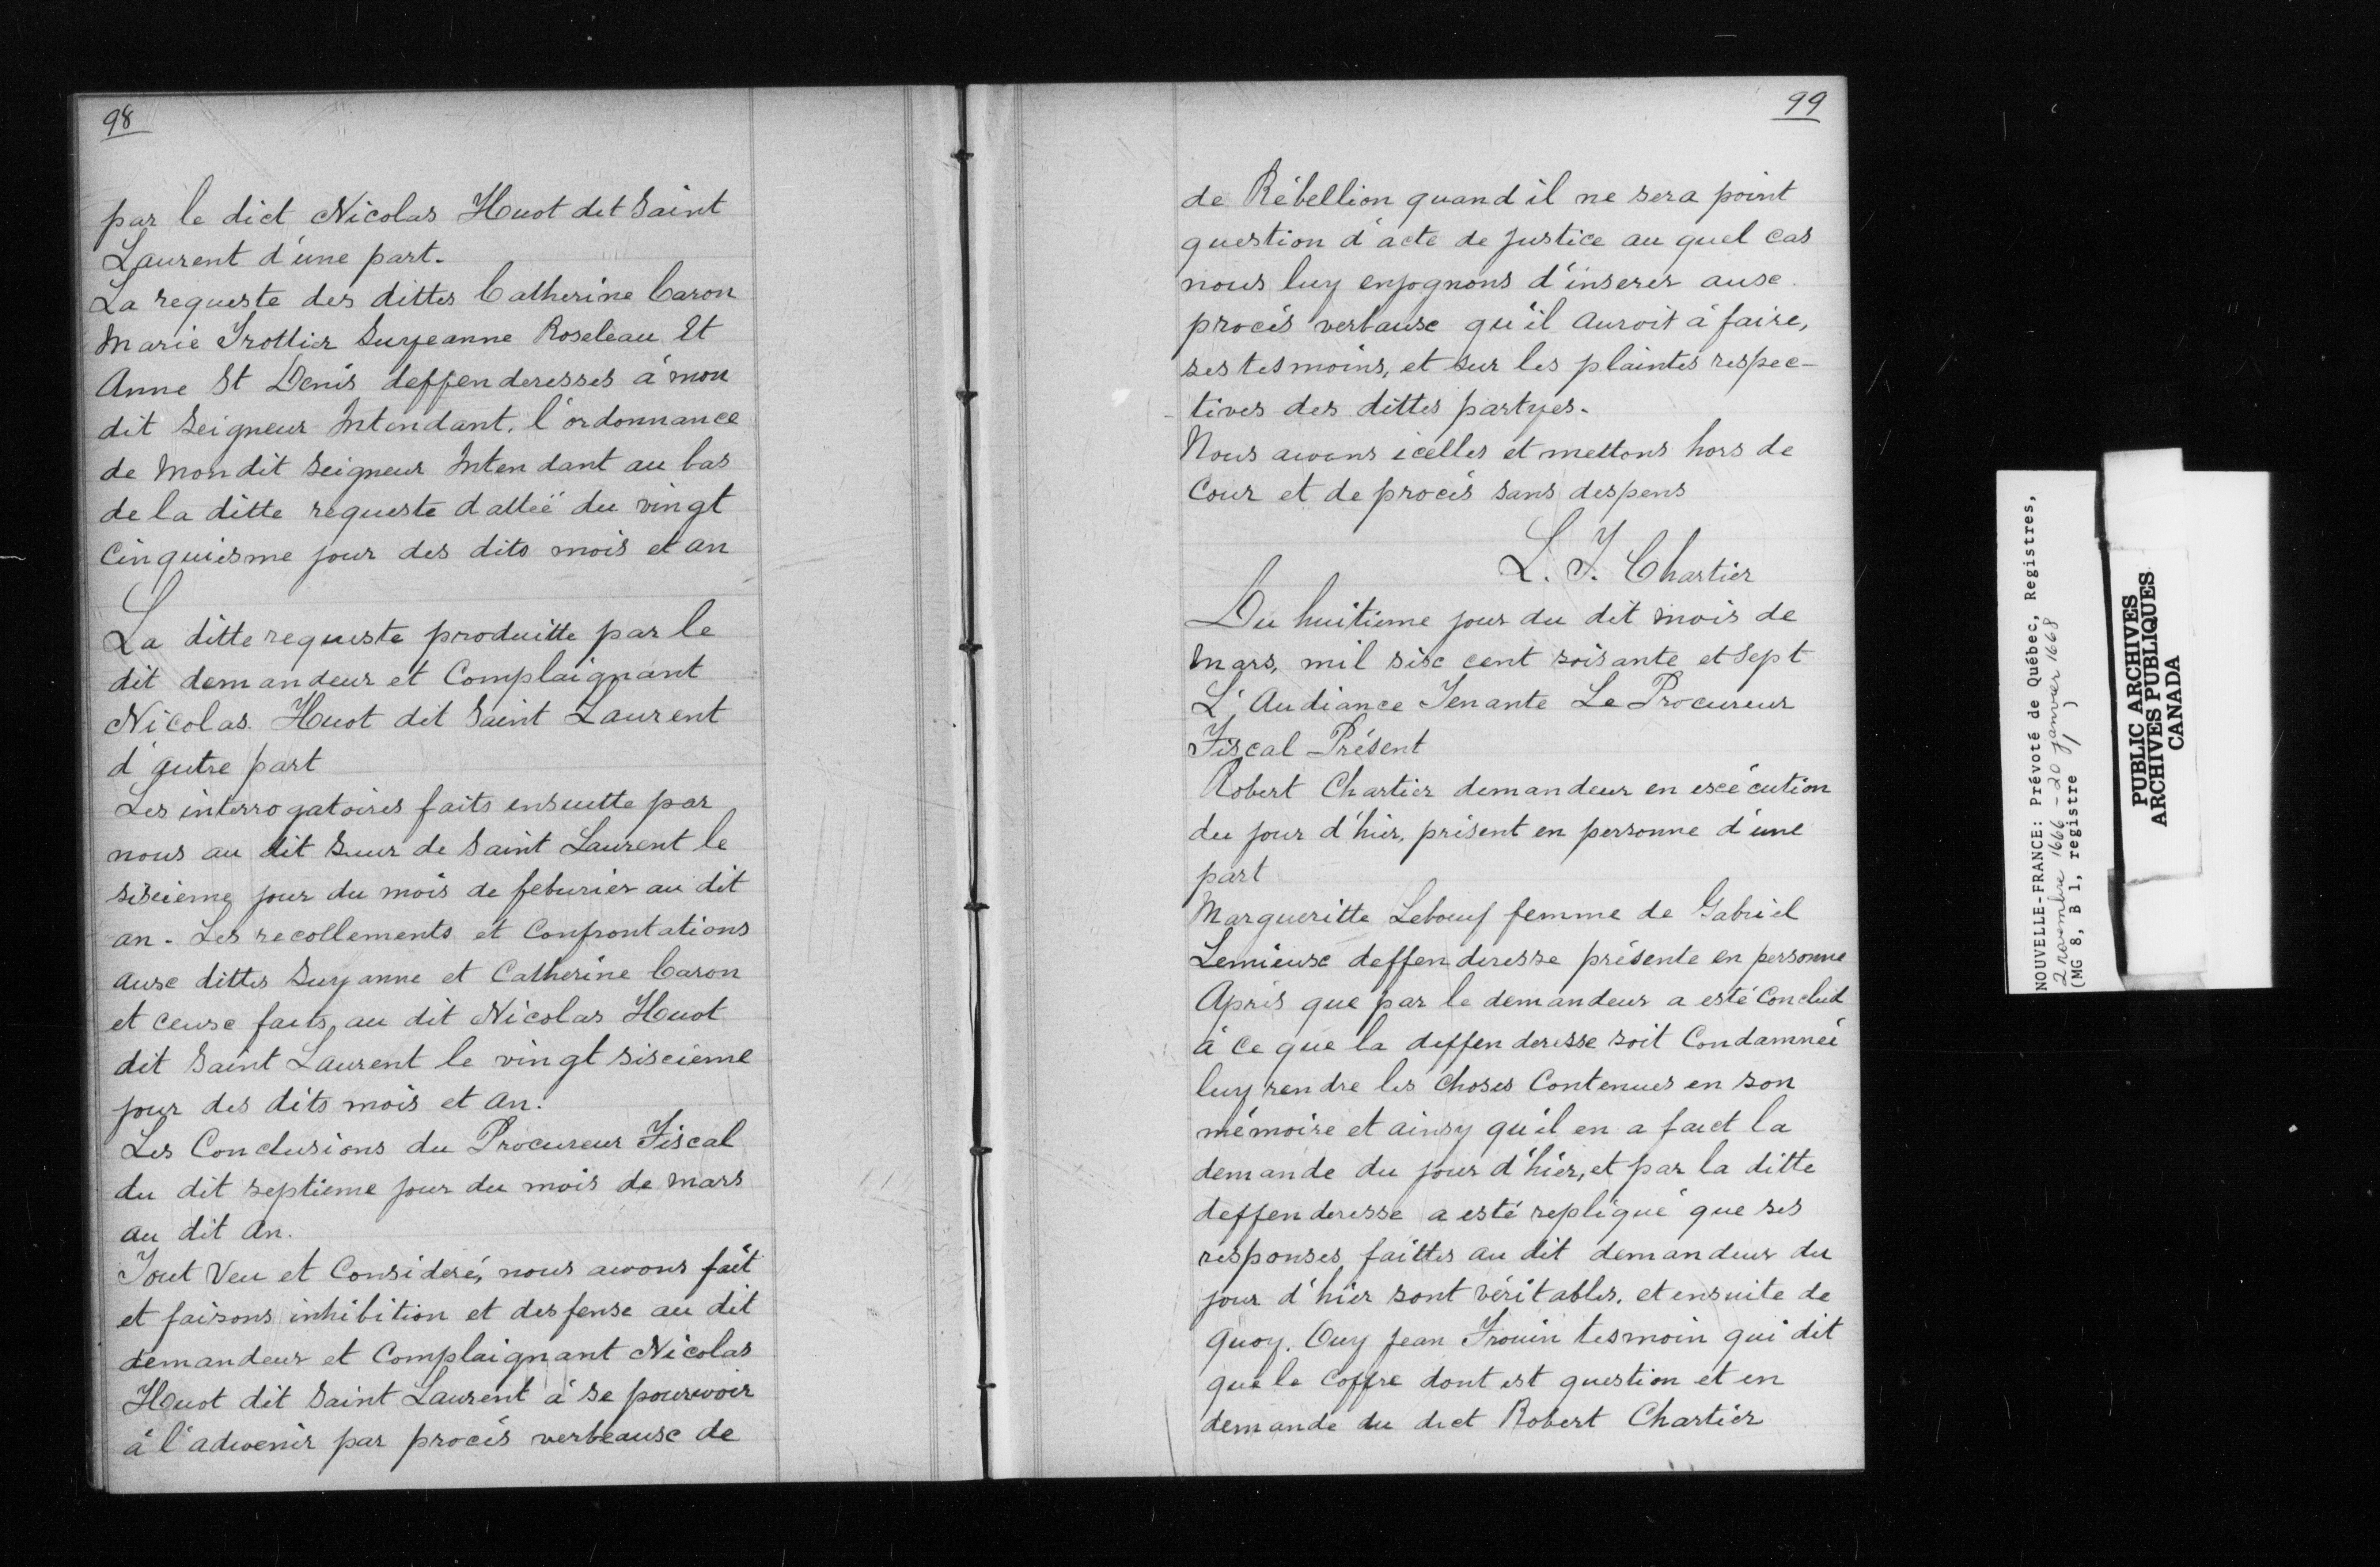 98
par le dict Nicolas Huot dit Saint
Laurent d'une part.
La requeste des dittes Catherine Caron
Marie Trottier Suzeanne Roseleau Et
Anne St Denis deffenderesses à mon
dit Seigneur Intendant. l'ordonnance
de Mondit Seigneur Intendant au bas
de la ditte requeste dattéë du vingt
Cinquiesme jour des dits mois et an
La ditte requeste produitte par le
dit demandeur et Complaignant
Nicolas Huot dit Saint Laurent
d'autre part
Les interrogatoires faits ensuitte par
nous au dit Sieur de Saint Laurent le
sixieme jour du mois de feburier au dit
an. Les recollements et Confrontations
aux dittes Suzanne et Catherine Caron
et ceux faits au dit Nicolas Huot
dit Saint Laurent le vingt sixieme
jour des dits mois et an.
Les Conclusions du Procureur Fiscal
du dit septieme jour du mois de Mars
au dit an.
Tout Veu et Consideré, nous avons fait
et faisons inhibition et desfense au dit
demandeur et Complaignant Nicolas
Huot dit Saint Laurent à se pourvoir
à l'advenir par procés verbeaux de
99
de Rébellion quand il ne sera point
question d'acte de justice au quel cas
nous luy enjognons d'inserer aux
procés verbaux qu'il auroit à faire,
ses tesmoins, et sur les plaintes respec-
tives des dittes partyes.
Nous avons icelles et mettons hors de
Cour et de procés sans despens
L. T. Chartier
Du huitieme jour du dit mois de
Mars, mil six cent soisante et Sept
L'Audiance Tenante Le Procureur
Fiscal Présent
Robert Chartier demandeur en exécution
du jour d'hier, présent en personne d'une
part
Margueritte Lebœuf femme de Gabriel
Lemieux deffenderesse présente en personne
Après que par le demandeur a esté Conclud
à Ce que la deffenderesse soit Condamnéé
luy rendre les choses Contenues en son
mémoire et ainsy qu'il en a faict la
demande du jour d'hier, et par la ditte
deffenderesse a esté repliqué que ses
responses faittes au dit demandeur du
jour d'hier sont véritables. et ensuite de
quoy. Ouy Jean Frouin tesmoin qui dit
que le Coffre dont est question et en
demande du dict Robert Chartier
NOUVELLE-FRANCE: Prévoté de Québec, Registres,
2 novembre 1666 - 20 janvier 1668
(MG 8, B 1, registre 1)
PUBLIC ARCHIVES
ARCHIVES PUBLIQUES
CANADA